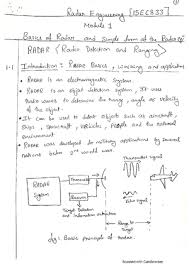 Radar Engineering [15EC833]
Module 1
Basics of Radar and Simple form of the Radar Eqn
RADAR (Radio Detection and Ranging)
1.1 Introduction: RADAR Basics, Working and applications
• RADAR is an electromagnetic system
• RADAR is an object detection system, it uses
Radio waves to determine the range, angle or velocity
of the object
• It can be used to detect objects such as aircraft
Ships, Spacecraft, vehicles, people and the natural
environment
• RADAR was developed for military applications by several
nations before 2nd world war.
Transmitted signal
RADAR
System
Transmitter
Receiver
Echo signal
Target Detection
and Information extraction
Range to
Target
Fig: Basic principle of Radar
Scanned with CamScanner